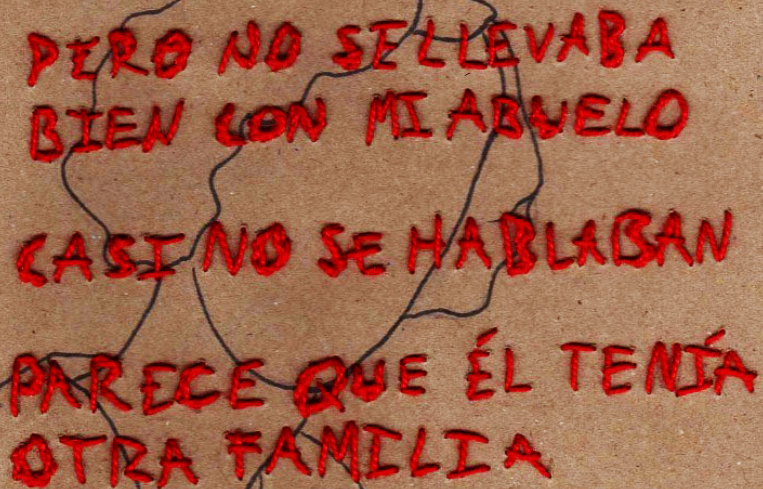 PERO NO SE LLEVABA
BIEN CON MI ABUELO
CASI NO SE HABLABAN
PARECE QUE ÉL TENÍA
OTRA FAMILIA